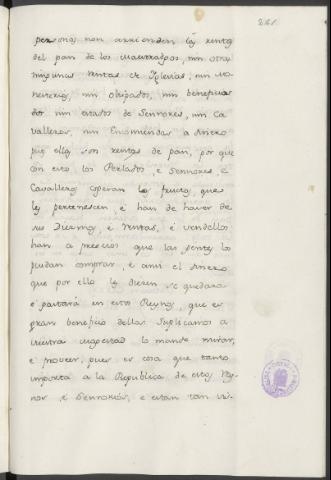 221.
personas non arrienden las rentas
del pan de los Maestrazgos, nin otras
ningunas rentas de Iglesias, nin Mo-
nesterios, nin obispados, nin beneficia
dos nin estados de Sennores, nin Ca
valleros, nin Encomiendas a dinero
que ellas son rentas de pan, por que
con esto los Perlados, e Sennores, e
Cavalleros esperan los frutos, que
les pertenescen, e han de haver de
sus Diezmos, e rentas, e vendellos
han a precios que las gentes los
puedan comprar, e ansi el dinero
que por ello les dieren se quedara
e gastará en estos Reynos, que es
gran beneficio dellos Suplicamos a
vuestra Magestad lo mande mirar,
e proveer, pues es cosa que tanto
importa a la Republica de estos Rey-
nos e Sennorios, e están tan vi-